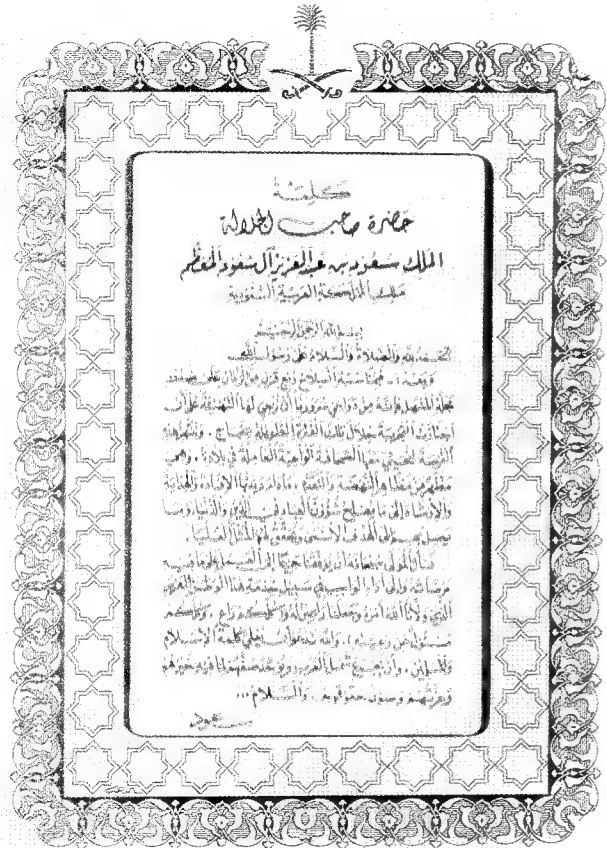 كلمة
حضرة صاحب الجلالة
الملك سعود بن عبد العزيز آل سعود المعظم
ملك المملكة العربية السعودية
بسم الله الرحمن الرحيم
الحمد لله والصلاة والسلام على رسول الله
وبعد : فبمناسبة انسلاخ ربع قرن من الزمان على
مجلة المنهل فإنه من دواعي سرورنا أن نزجي لها التهنئة على أن
اجتازت التجربة خلال تلك الفترة الطويلة بنجاح .
الفرصة لنحيي معها الصحافة الواعية العاملة في بلادنا . وهي
مظهر من مظاهر النهضة والتقدم مادام
والإرشاد إلى ما يصلح شؤون العباد في الدين والدنيا
إلى الهدف الأسمى ويحقق لهم المثل العليا .
نسأل المولى سبحانه أن يوفقنا جميعا إلى العمل لما فيه
مرضاته وإلى أداء الواجب في سبيل خدمة هذا الوطن العزيز
الذي ولانا الله أمره وجعلنا وكلكم راع ، وكلكم
مسئول عن رعيته ) . وأن يعلي كلمة الإسلام
والمسلمين . وأن يجمع شمل العرب ويوحد صفهم لما فيه خيرهم
وعزتهم وصون حقوقهم . والسلام ...
سعود